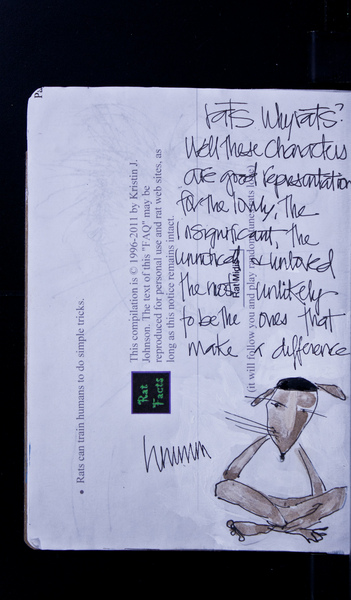 rats Why rats?
Well these characters
are good representation
for the lowly, the
insignificant, the
unnoticed & unloved
the most unlikely
to be the ones that
make a difference
hmmm
• Rats can train humans to do simple tricks.
This compilation is © 1996-2011 by Kristin J.
Johnson. The text of this "FAQ" may be
reproduced for personal use and rat web sites, as
long as this notice remains intact.
Rat
Facts
(it will follow you and play